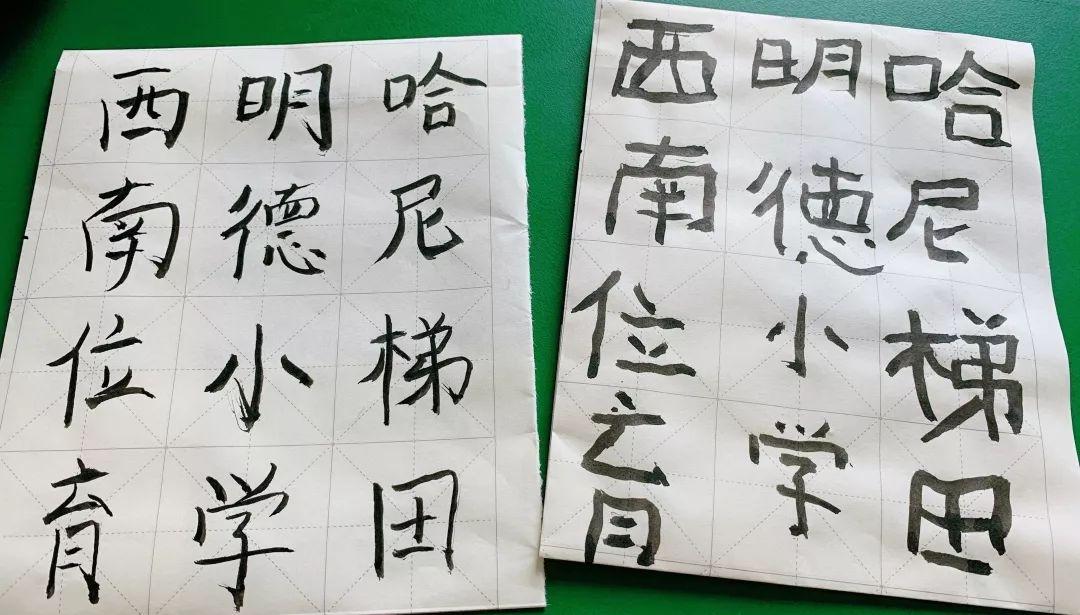 哈尼梯田
明德小学
西南位育
哈尼梯田
明德小学
西南位育